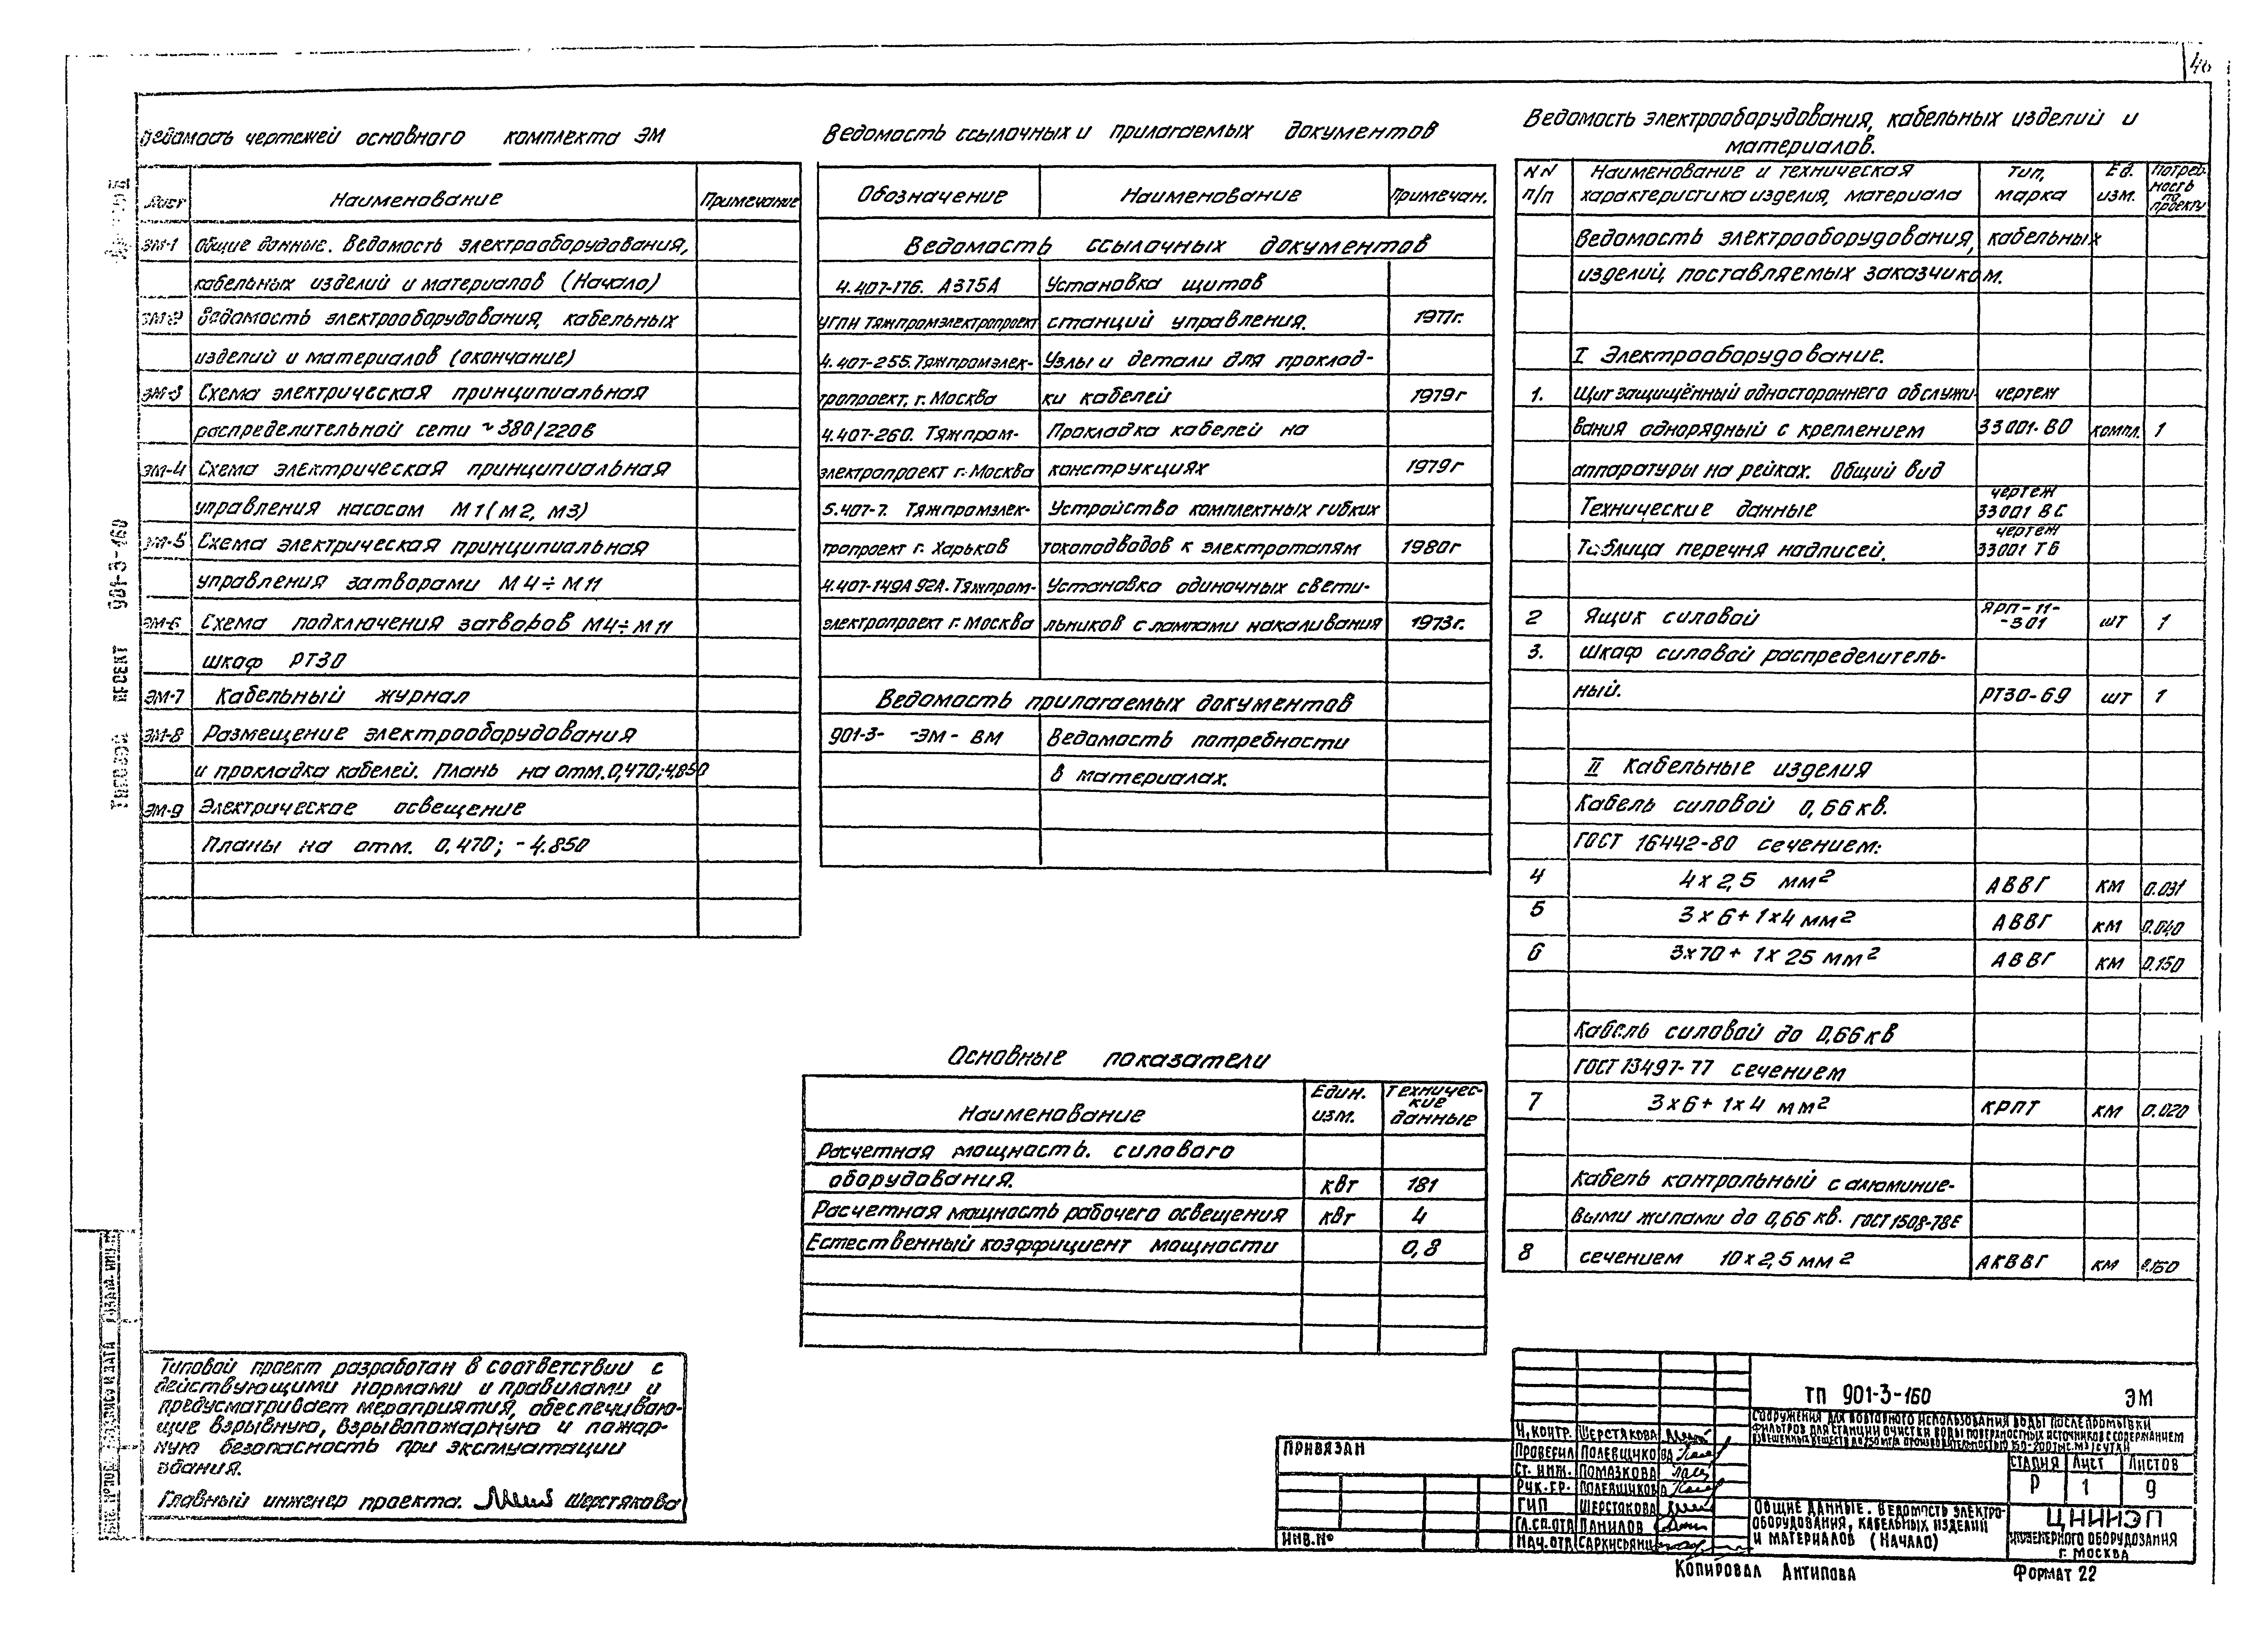 Ведомость чертежей основного комплекта ЭМ
Лист Наименование Примечание
ЭМ-1 Общие данные. Ведомость электрооборудования,
кабельных изделий и материалов (Начало)
ЭМ-2 Ведомость электрооборудования, кабельных
изделий и материалов (окончание)
ЭМ-3 Схема электрическая принципиальная
распределительной сети ~380/220в
ЭМ-4 Схема электрическая принципиальная
управления насосом М1(М2, М3)
ЭМ-5 Схема электрическая принципиальная
управления затворами М4÷М11
ЭМ-6 Схема подключения затворов М4÷М11
шкаф РТ30
ЭМ-7 Кабельный журнал
ЭМ-8 Размещение электрооборудования
и прокладка кабелей. Планы на отм.0,470;4,850
ЭМ-9 Электрическое освещение
Планы на отм. 0,470; -4.850
Ведомость ссылочных и прилагаемых документов
Обозначение Наименование Примечан.
Ведомость ссылочных документов
4.407-176. А375А Установка щитов
УГПИ Тяжпромэлектропроект станций управления. 1977г.
4.407-255. Тяжпромэлек- Узлы и детали для проклад-
тропроект, г. Москва ки кабелей 1979г
4.407-260. Тяжпром- Прокладка кабелей на
электропроект г. Москва конструкциях 1979г
5.407-7. Тяжпромэлек- Устройство комплектных гибких
тропроект г. Харьков токоподводов к электроталям 1980г
4.407-149А 92А. Тяжпром- Установка одиночных свети-
электропроект г. Москва льников с лампами накаливания 1973г.
Ведомость прилагаемых документов
901-3- -ЭМ- ВМ Ведомость потребности
в материалах.
Основные показатели
Наименование Един. изм. Техничес- кие данные
Расчетная мощность. силового
оборудования. квт 181
Расчетная мощность рабочего освещения квт 4
Естественный коэффициент мощности 0,8
Ведомость электрооборудования, кабельных изделий и
материалов.
NN п/п Наименование и техническая характеристика изделия, материала Тип, марка Ед. изм. Потреб- ность по проекту
Ведомость электрооборудования, кабельных
изделий, поставляемых заказчиком.
I Электрооборудование.
1. Щит защищённый одностороннего обслужи- чертеж
вания однорядный с креплением 33001-ВО компл. 1
аппаратуры на рейках. Общий вид
Технические данные чертеж 33001 ВС
Таблица перечня надписей. чертеж 33001 ТБ
2 Ящик силовой ЯРП-11- -301 шт 1
3. Шкаф силовой распределитель-
ный. РТ30-69 шт 1
II Кабельные изделия
Кабель силовой 0,66 кв.
ГОСТ 16442-80 сечением:
4 4 х 2,5 мм² АВВГ км 0.031
5 3 х 6 + 1 х 4 мм² АВВГ км 0.040
6 3х70 + 1 х 25 мм² АВВГ км 0.150
Кабель силовой до 0,66 кв
ГОСТ 13497-77 сечением
7 3 х 6 + 1 х 4 мм² КРПТ км 0.020
Кабель контрольный с алюминие-
выми жилами до 0,66 кв. ГОСТ 1508-78Е
8 сечением 10 х 2,5 мм² АКВВГ км 0.150
Типовой проект разработан в соответствии с
действующими нормами и правилами и
предусматривает мероприятия, обеспечиваю-
щие взрывную, взрывопожарную и пожар-
ную безопасность при эксплуатации
здания.
Главный инженер проекта. Шерстякова
ПРИВЯЗАН
ИНВ.№
Н.КОНТР. ШЕРСТЯКОВА
ПРОВЕРИЛ ПОЛЕВЩИКОВА
СТ. ИНЖ. ПОМАЗКОВА
РУК.ГР. ПОЛЕВЩИКОВА
ГИП ШЕРСТЯКОВА
ГЛ.СП.ОТД ДАНИЛОВ
НАЧ.ОТД САРКИСЬЯНЦ
ТП 901-3-160 ЭМ
СООРУЖЕНИЯ ДЛЯ ПОВТОРНОГО ИСПОЛЬЗОВАНИЯ ВОДЫ ПОСЛЕ ПРОМЫВКИ
ФИЛЬТРОВ ДЛЯ СТАНЦИИ ОЧИСТКИ ВОДЫ ПОВЕРХНОСТНЫХ ИСТОЧНИКОВ С СОДЕРЖАНИЕМ
ВЗВЕШЕННЫХ ВЕЩЕСТВ ДО 250 МГ/Л ПРОИЗВОДИТЕЛЬНОСТЬЮ 150-200 ТЫС.М3/СУТКИ
СТАДИЯ ЛИСТ ЛИСТОВ
Р 1 9
ОБЩИЕ ДАННЫЕ. ВЕДОМОСТЬ ЭЛЕКТРО-
ОБОРУДОВАНИЯ, КАБЕЛЬНЫХ ИЗДЕЛИЙ
И МАТЕРИАЛОВ (НАЧАЛО)
ЦНИИЭП
ИНЖЕНЕРНОГО ОБОРУДОВАНИЯ
Г. МОСКВА
КОПИРОВАЛ АНТИПОВА
ФОРМАТ 22
ТИПОВОЙ ПРОЕКТ 901-3-160
ИНВ. № ПОДЛ. ПОДПИСЬ И ДАТА ВЗАМ. ИНВ. №